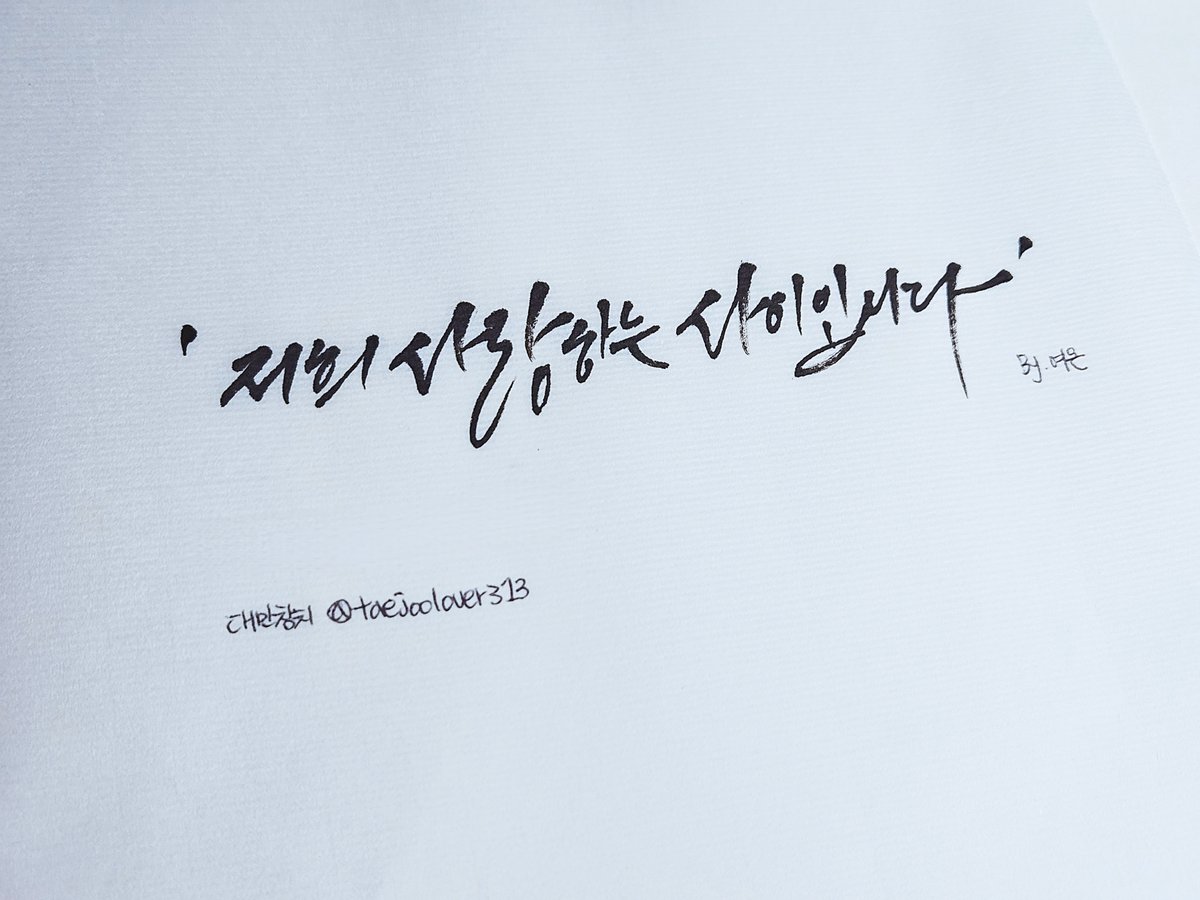 '저희 사랑하는 사이입니다'
여은
대만참치 @taejoolover313